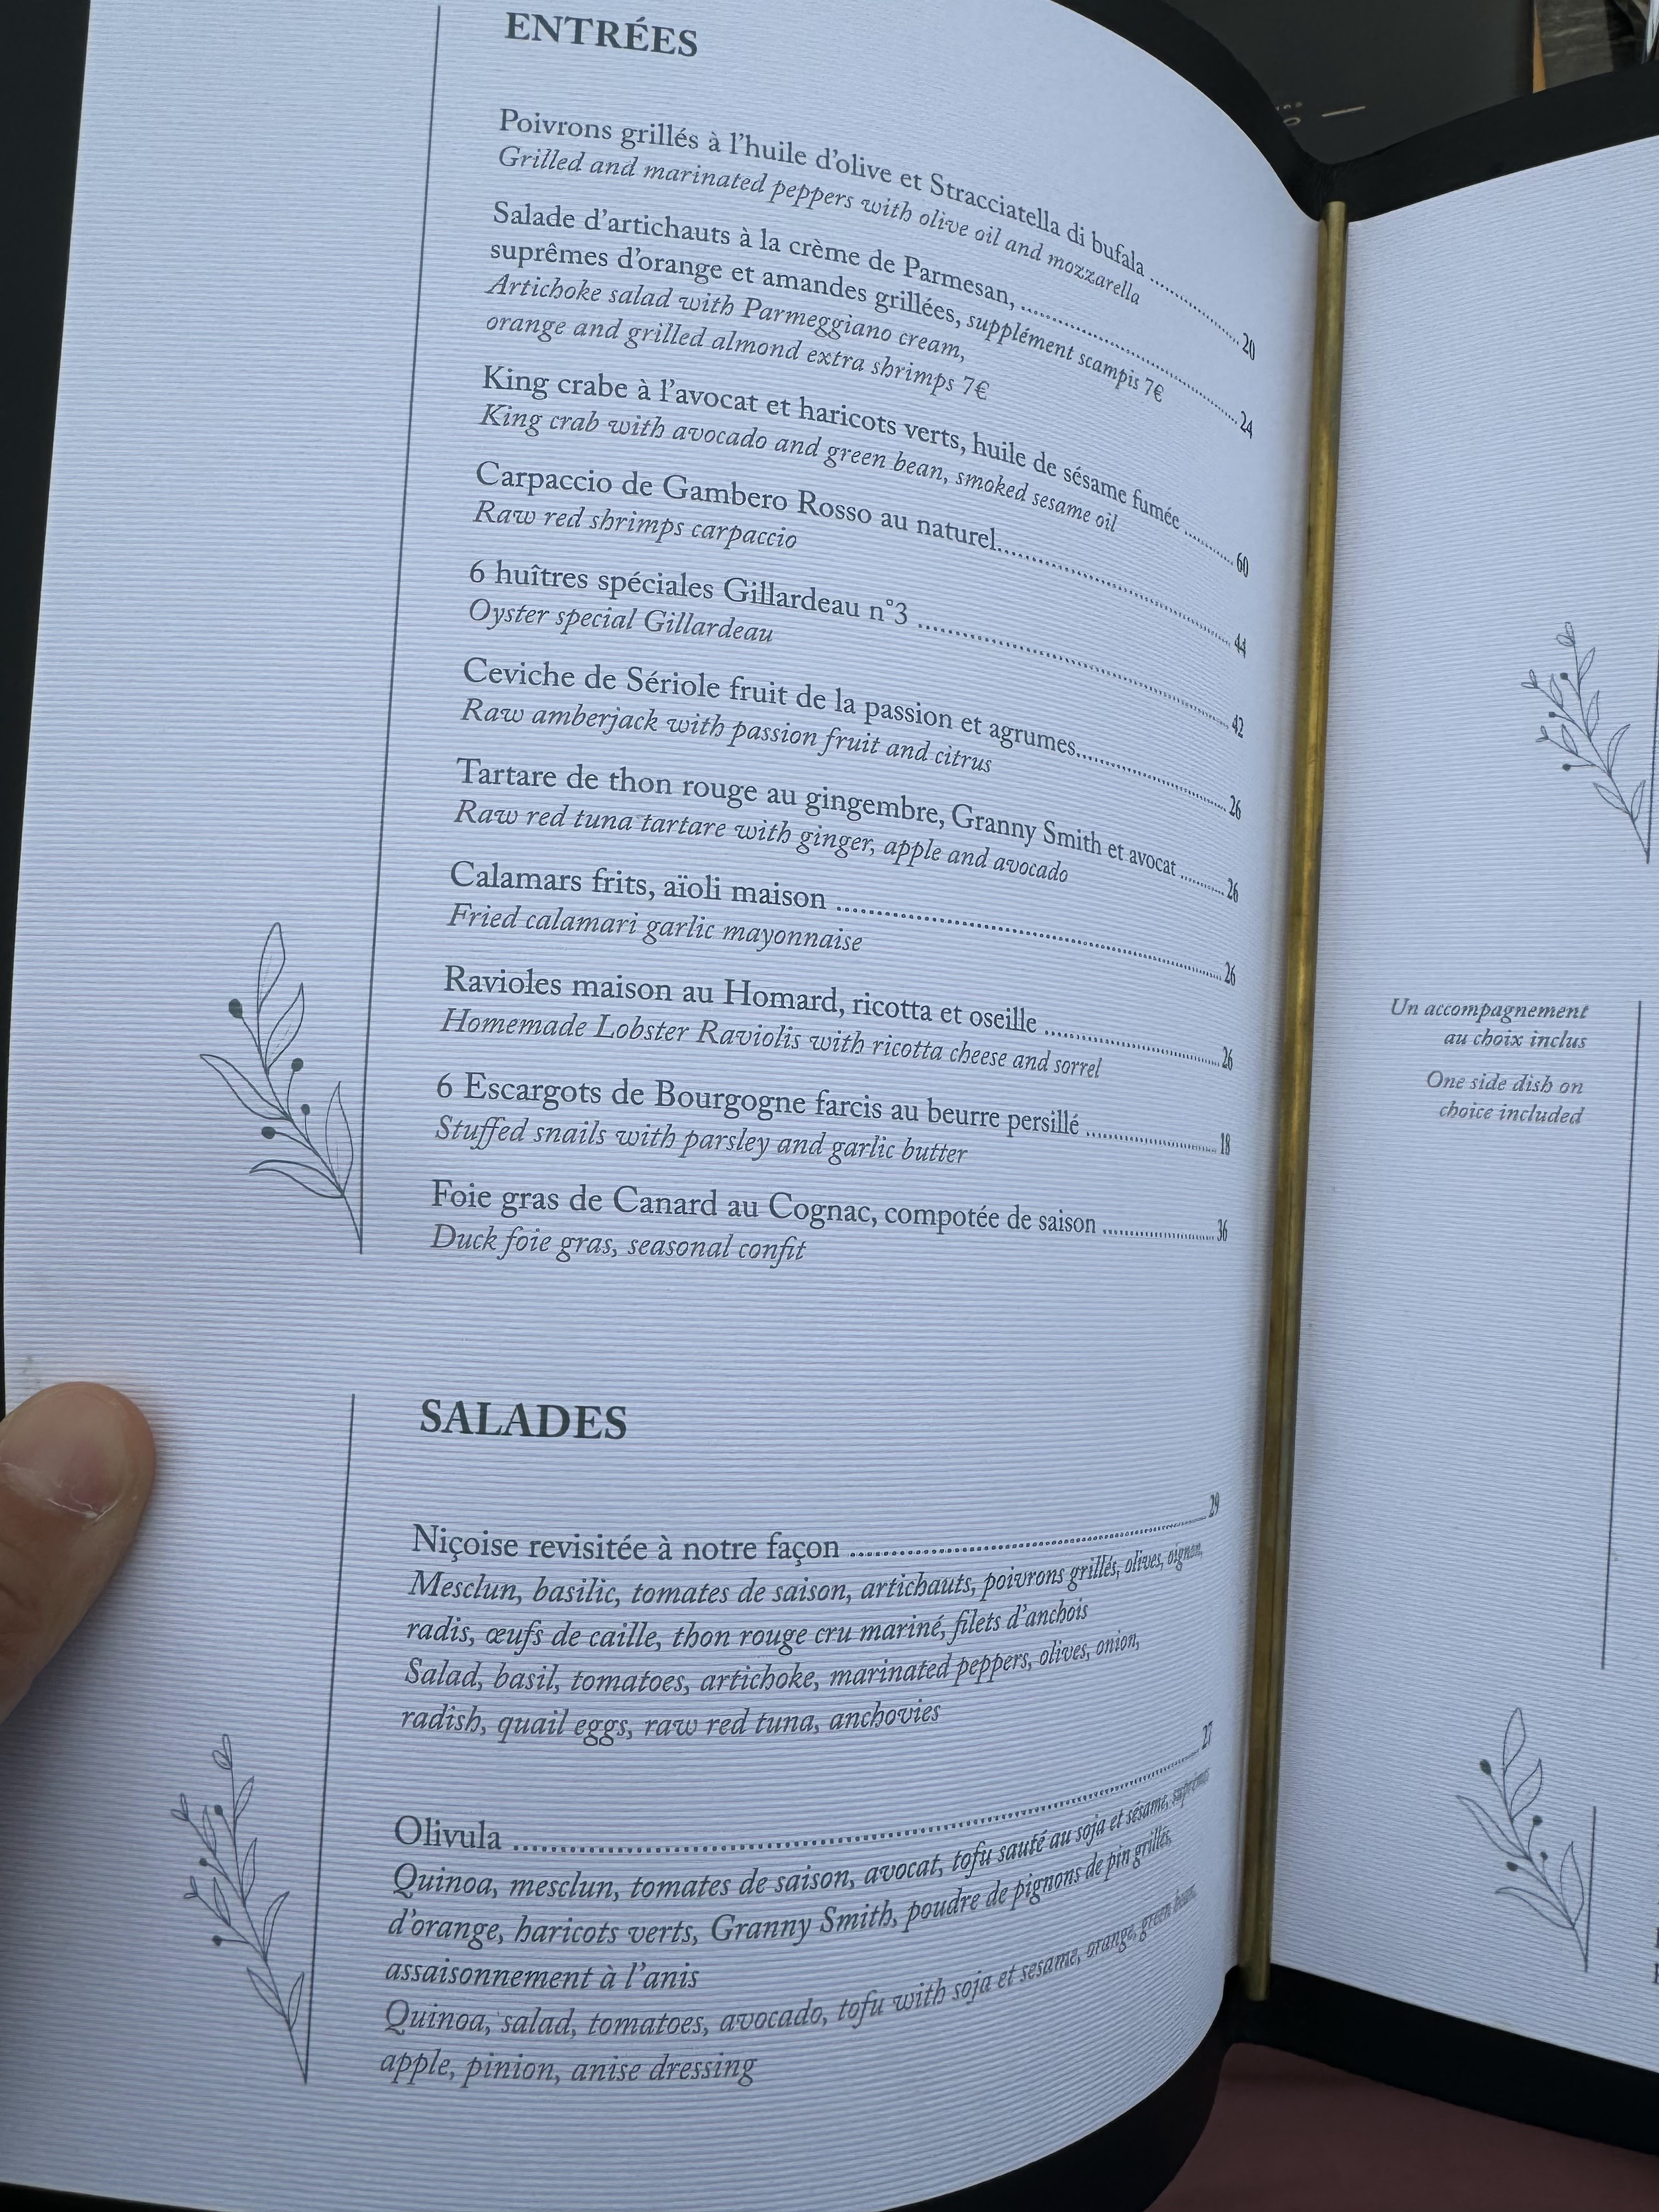 ENTRÉES
Poivrons grillés à l'huile d'olive et Stracciatella di bufala ........ 20
Grilled and marinated peppers with olive oil and mozzarella
Salade d'artichauts à la crème de Parmesan, ........ 24
suprêmes d'orange et amandes grillées, supplément scampis 7€
Artichoke salad with Parmeggiano cream,
orange and grilled almond extra shrimps 7€
King crabe à l'avocat et haricots verts, huile de sésame fumée ........ 60
King crab with avocado and green bean, smoked sesame oil
Carpaccio de Gambero Rosso au naturel........ 44
Raw red shrimps carpaccio
6 huîtres spéciales Gillardeau n°3 ........ 42
Oyster special Gillardeau
Ceviche de Sériole fruit de la passion et agrumes........ 26
Raw amberjack with passion fruit and citrus
Tartare de thon rouge au gingembre, Granny Smith et avocat ........ 26
Raw red tuna tartare with ginger, apple and avocado
Calamars frits, aïoli maison ........ 26
Fried calamari garlic mayonnaise
Ravioles maison au Homard, ricotta et oseille ........ 26
Homemade Lobster Raviolis with ricotta cheese and sorrel
6 Escargots de Bourgogne farcis au beurre persillé ........ 18
Stuffed snails with parsley and garlic butter
Foie gras de Canard au Cognac, compotée de saison ........ 36
Duck foie gras, seasonal confit
SALADES
Niçoise revisitée à notre façon ........ 29
Mesclun, basilic, tomates de saison, artichauts, poivrons grillés, olives, oignon,
radis, œufs de caille, thon rouge cru mariné, filets d'anchois
Salad, basil, tomatoes, artichoke, marinated peppers, olives, onion,
radish, quail eggs, raw red tuna, anchovies
Olivula ........ 27
Quinoa, mesclun, tomates de saison, avocat, tofu sauté au soja et sésame, suprêmes
d'orange, haricots verts, Granny Smith, poudre de pignons de pin grillés,
assaisonnement à l'anis
Quinoa, salad, tomatoes, avocado, tofu with soja et sesame, orange, green bean,
apple, pinion, anise dressing
Un accompagnement
au choix inclus
One side dish on
choice included